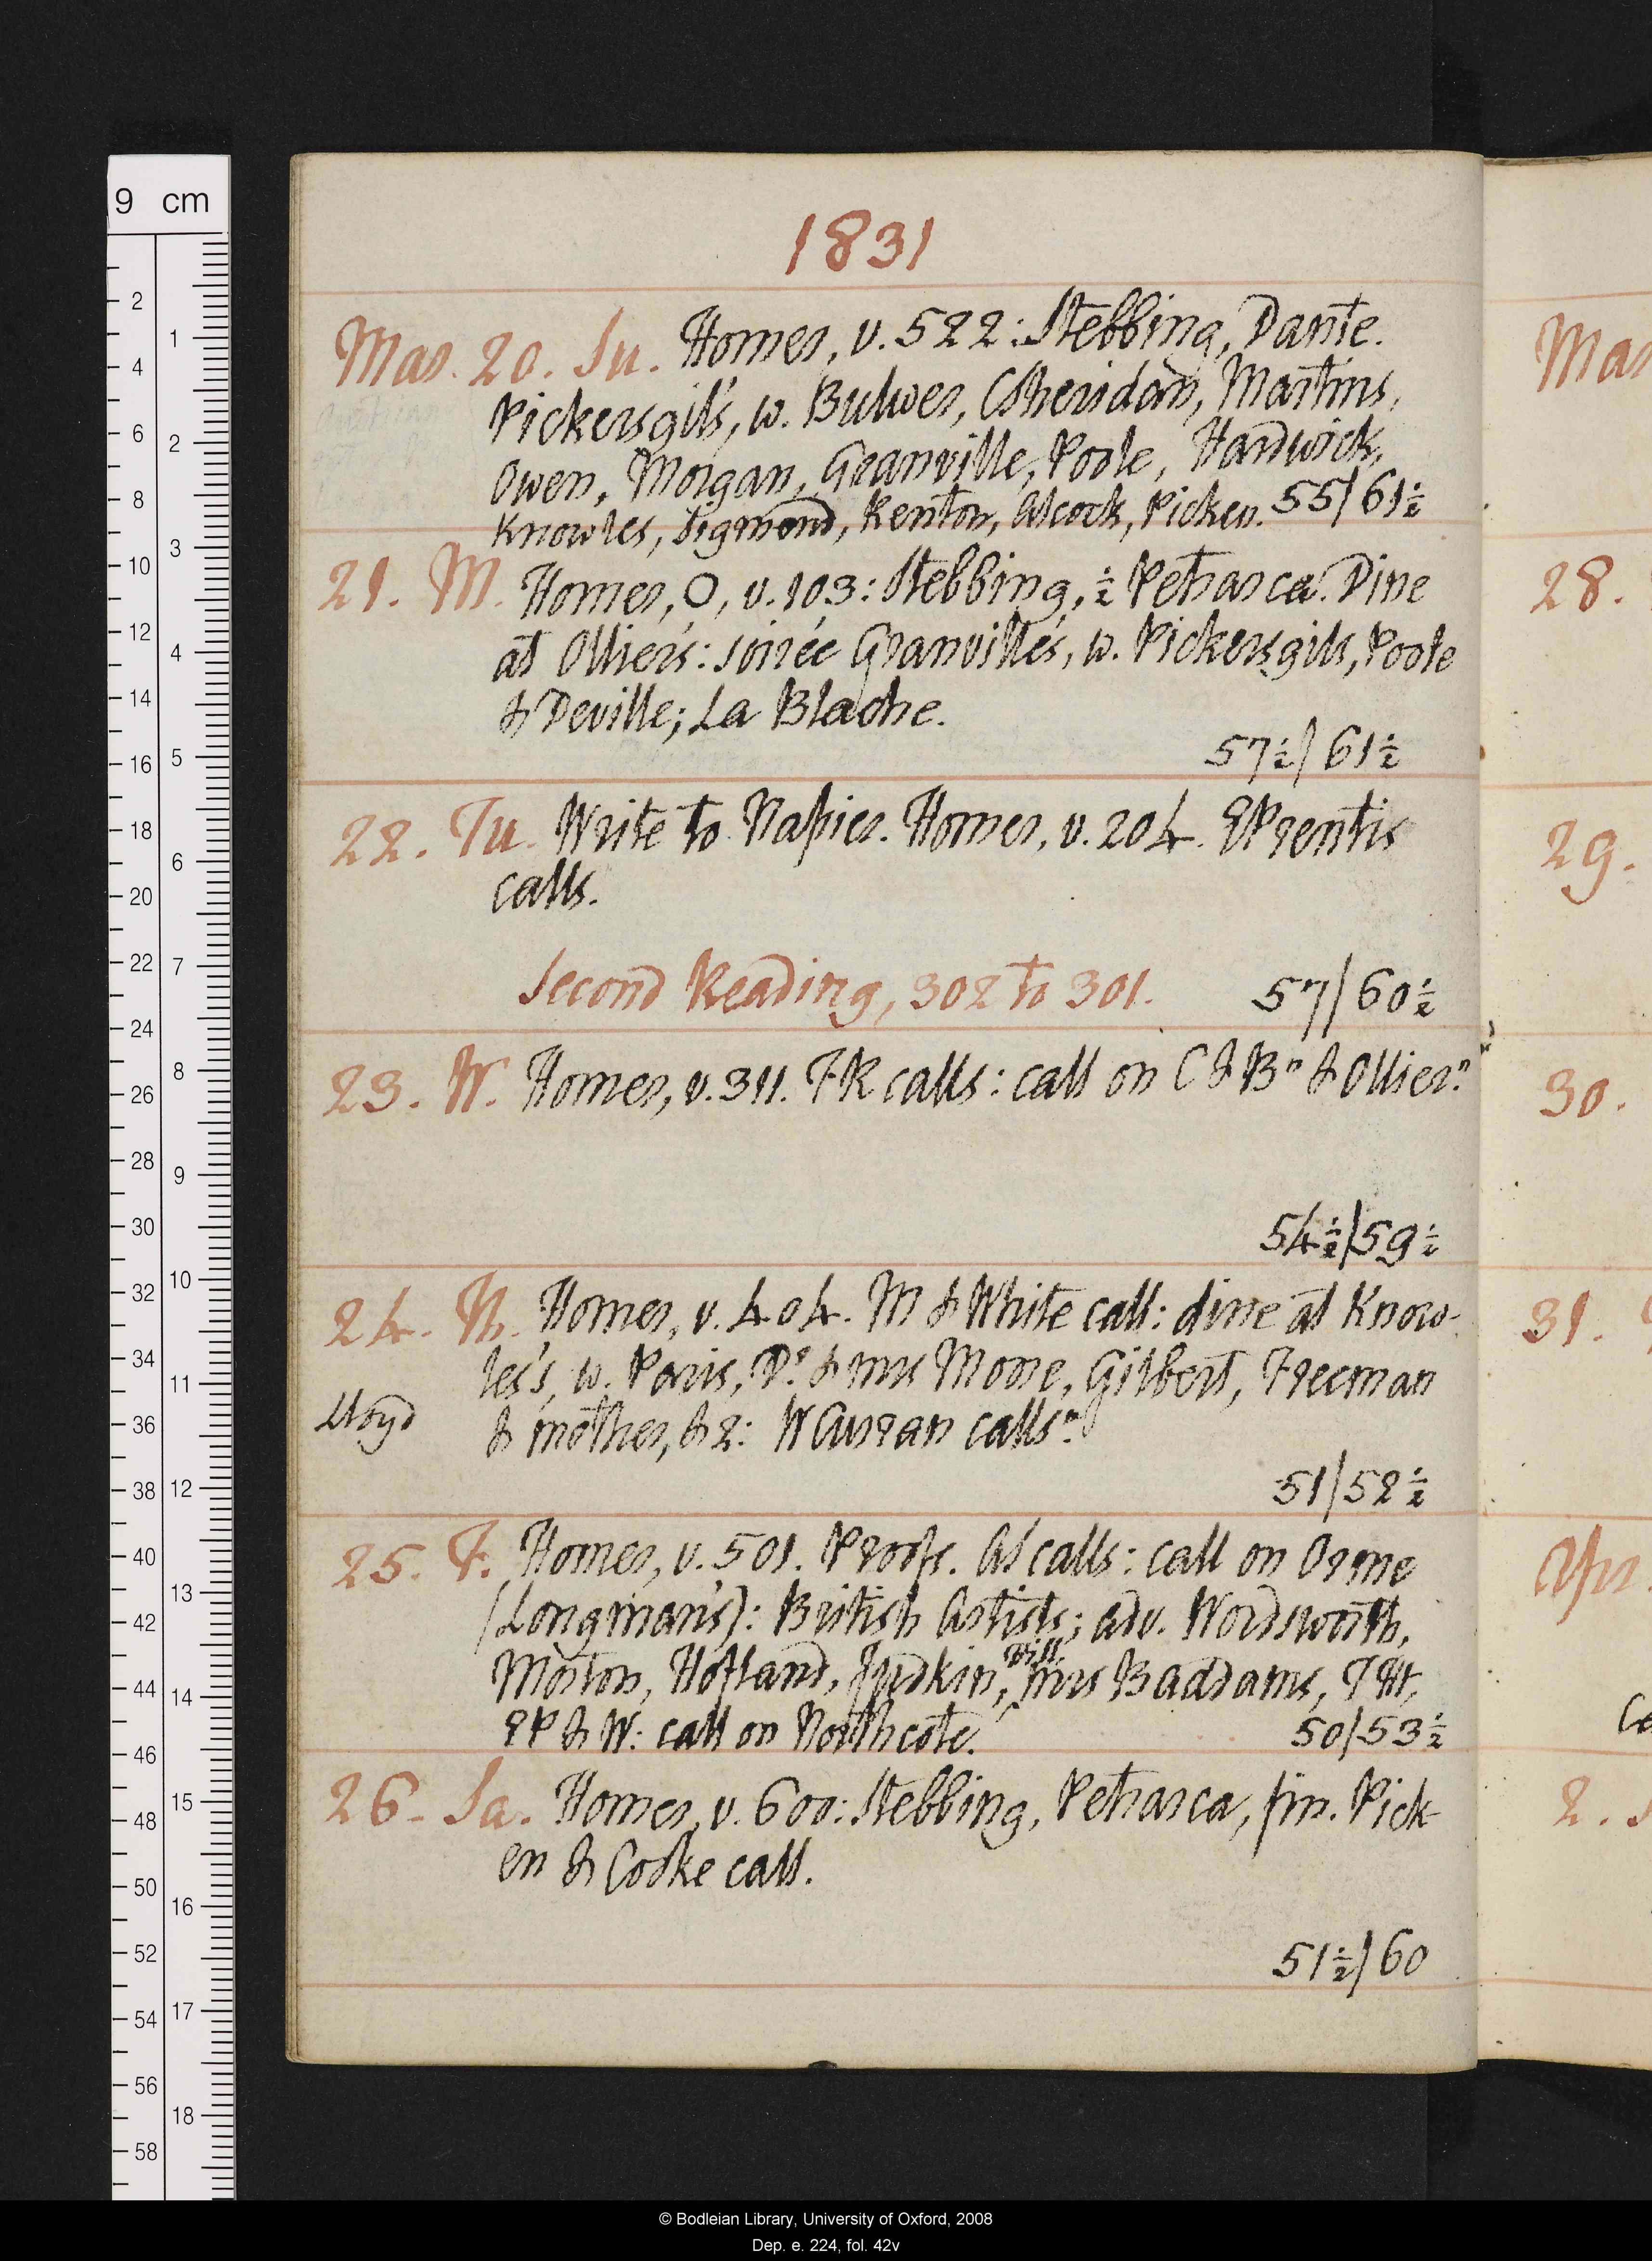 9 cm
1831
Mar. 20. Su. Homer, v. 522: Stebbing, Dante.
Pickersgil's, w. Bulwer, CSheridan, Martins,
Owen, Morgan, Granville, Poole, Hardwick,
Knowles, Sigmond, Kenton, Alcock, Picken. 55/61½
21. M. Homer, O, v. 103: Stebbing, ½ Petrarca. Dine
at Ollier's: soirée Granville's, w. Pickersgils, Poole
& Deville; La Blache.
57½/61½
22. Tu. Write to Napier. Homer, v. 204. EPrentis
calls.
Second Reading, 302 to 301. 57/60½
23. W. Homer, v. 311. FK calls: call on C & Bn & Ollier n.
54½/59½
24. Th. Homer, v. 404. M & White call: dine at Know-
les's, w. Paris, Dr. & mrs Moore, Gilbert, Freeman
Lloyd
& mother, & 2: WCurran calls n.
51/52½
25. F. Homer, v. 501. Proofs. AS calls: call on Orme
(Longman's): British Artists; adv. Wordsworth,
Morton, Hofland, Judkin, Hill, mrs Baddams, THt,
EP & W: call on Northcote. 50/53½
26. Sa. Homer, v. 600: Stebbing, Petrarca, fin. Pick-
en & Cooke call.
51½/60
Mar
28.
29.
30.
31.
Apr
2. S
© Bodleian Library, University of Oxford, 2008
Dep. e. 224, fol. 42v